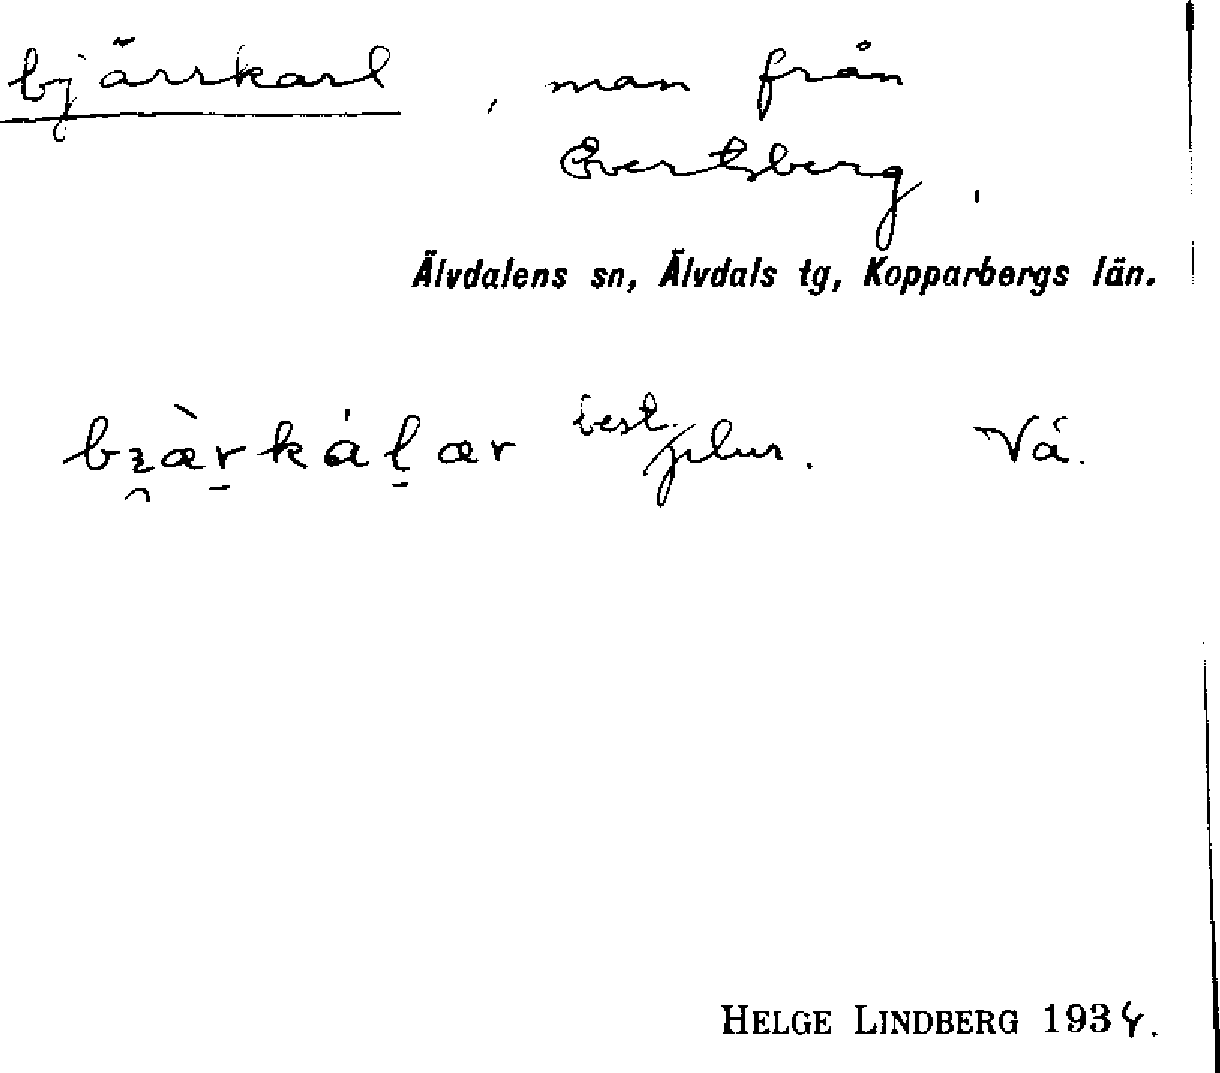 bjärrkarl, man från
Evertsberg.
Älvdalens sn, Älvdals tg, Kopparbergs län.
bi̯æ̀r̠kál̠ær best. plur. Vå.
HELGE LINDBERG 1934.